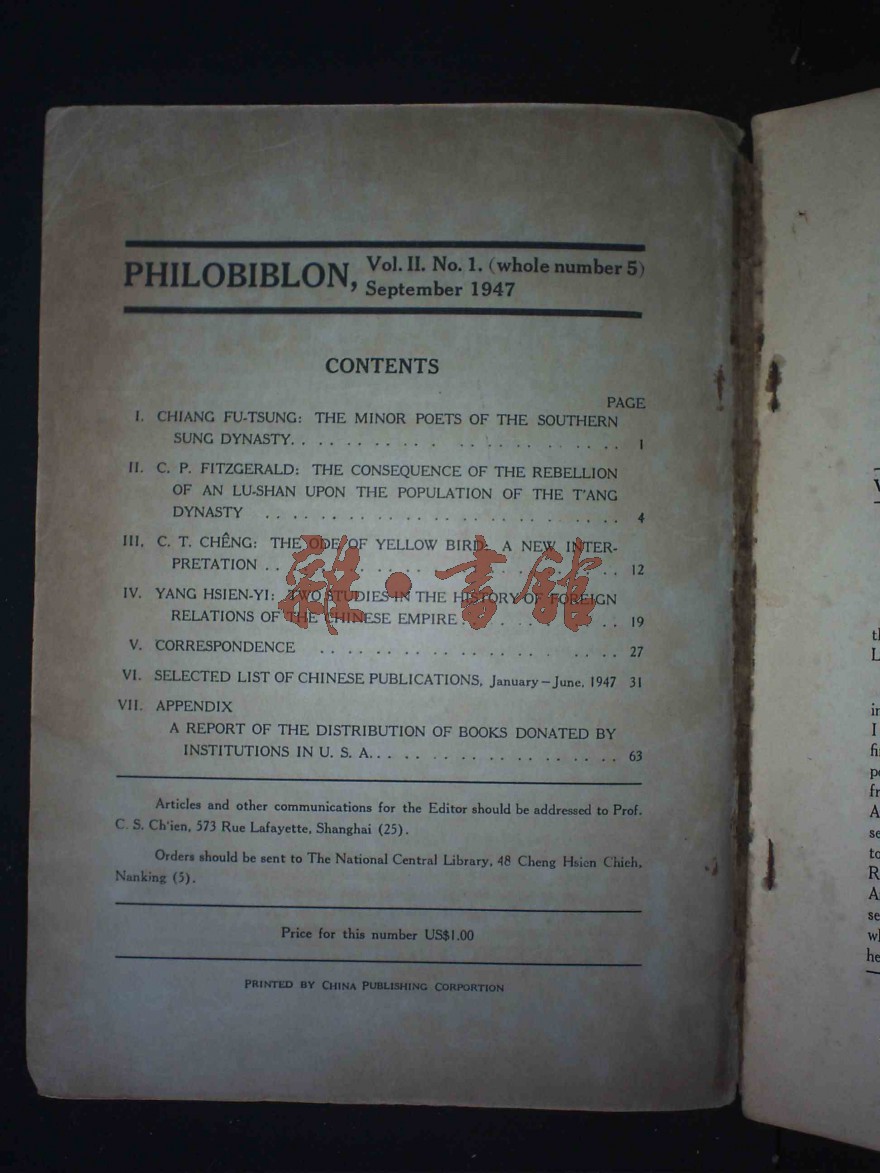 PHILOBIBLON, Vol. II. No. 1. (whole number 5)
September 1947
CONTENTS
PAGE
I. CHIANG FU-TSUNG: THE MINOR POETS OF THE SOUTHERN
SUNG DYNASTY. . . . . . . . . . . . . . . . . 1
II. C. P. FITZGERALD: THE CONSEQUENCE OF THE REBELLION
OF AN LU-SHAN UPON THE POPULATION OF THE T'ANG
DYNASTY . . . . . . . . . . . . . . . . . . . . 4
III. C. T. CHÊNG: THE ODE OF YELLOW BIRD: A NEW INTER-
PRETATION . . . . . . . . . . . . . . . . . . . 12
IV. YANG HSIEN-YI: TWO STUDIES IN THE HISTORY OF FOREIGN
RELATIONS OF THE CHINESE EMPIRE . . . . . . . . 19
V. CORRESPONDENCE . . . . . . . . . . . . . . . . 27
VI. SELECTED LIST OF CHINESE PUBLICATIONS, January—June, 1947 31
VII. APPENDIX
A REPORT OF THE DISTRIBUTION OF BOOKS DONATED BY
INSTITUTIONS IN U. S. A. . . . . . . . . . . . . . . 63
Articles and other communications for the Editor should be addressed to Prof.
C. S. Ch'ien, 573 Rue Lafayette, Shanghai (25).
Orders should be sent to The National Central Library, 48 Cheng Hsien Chieh,
Nanking (5).
Price for this number US$1.00
PRINTED BY CHINA PUBLISHING CORPORTION
雜·書館